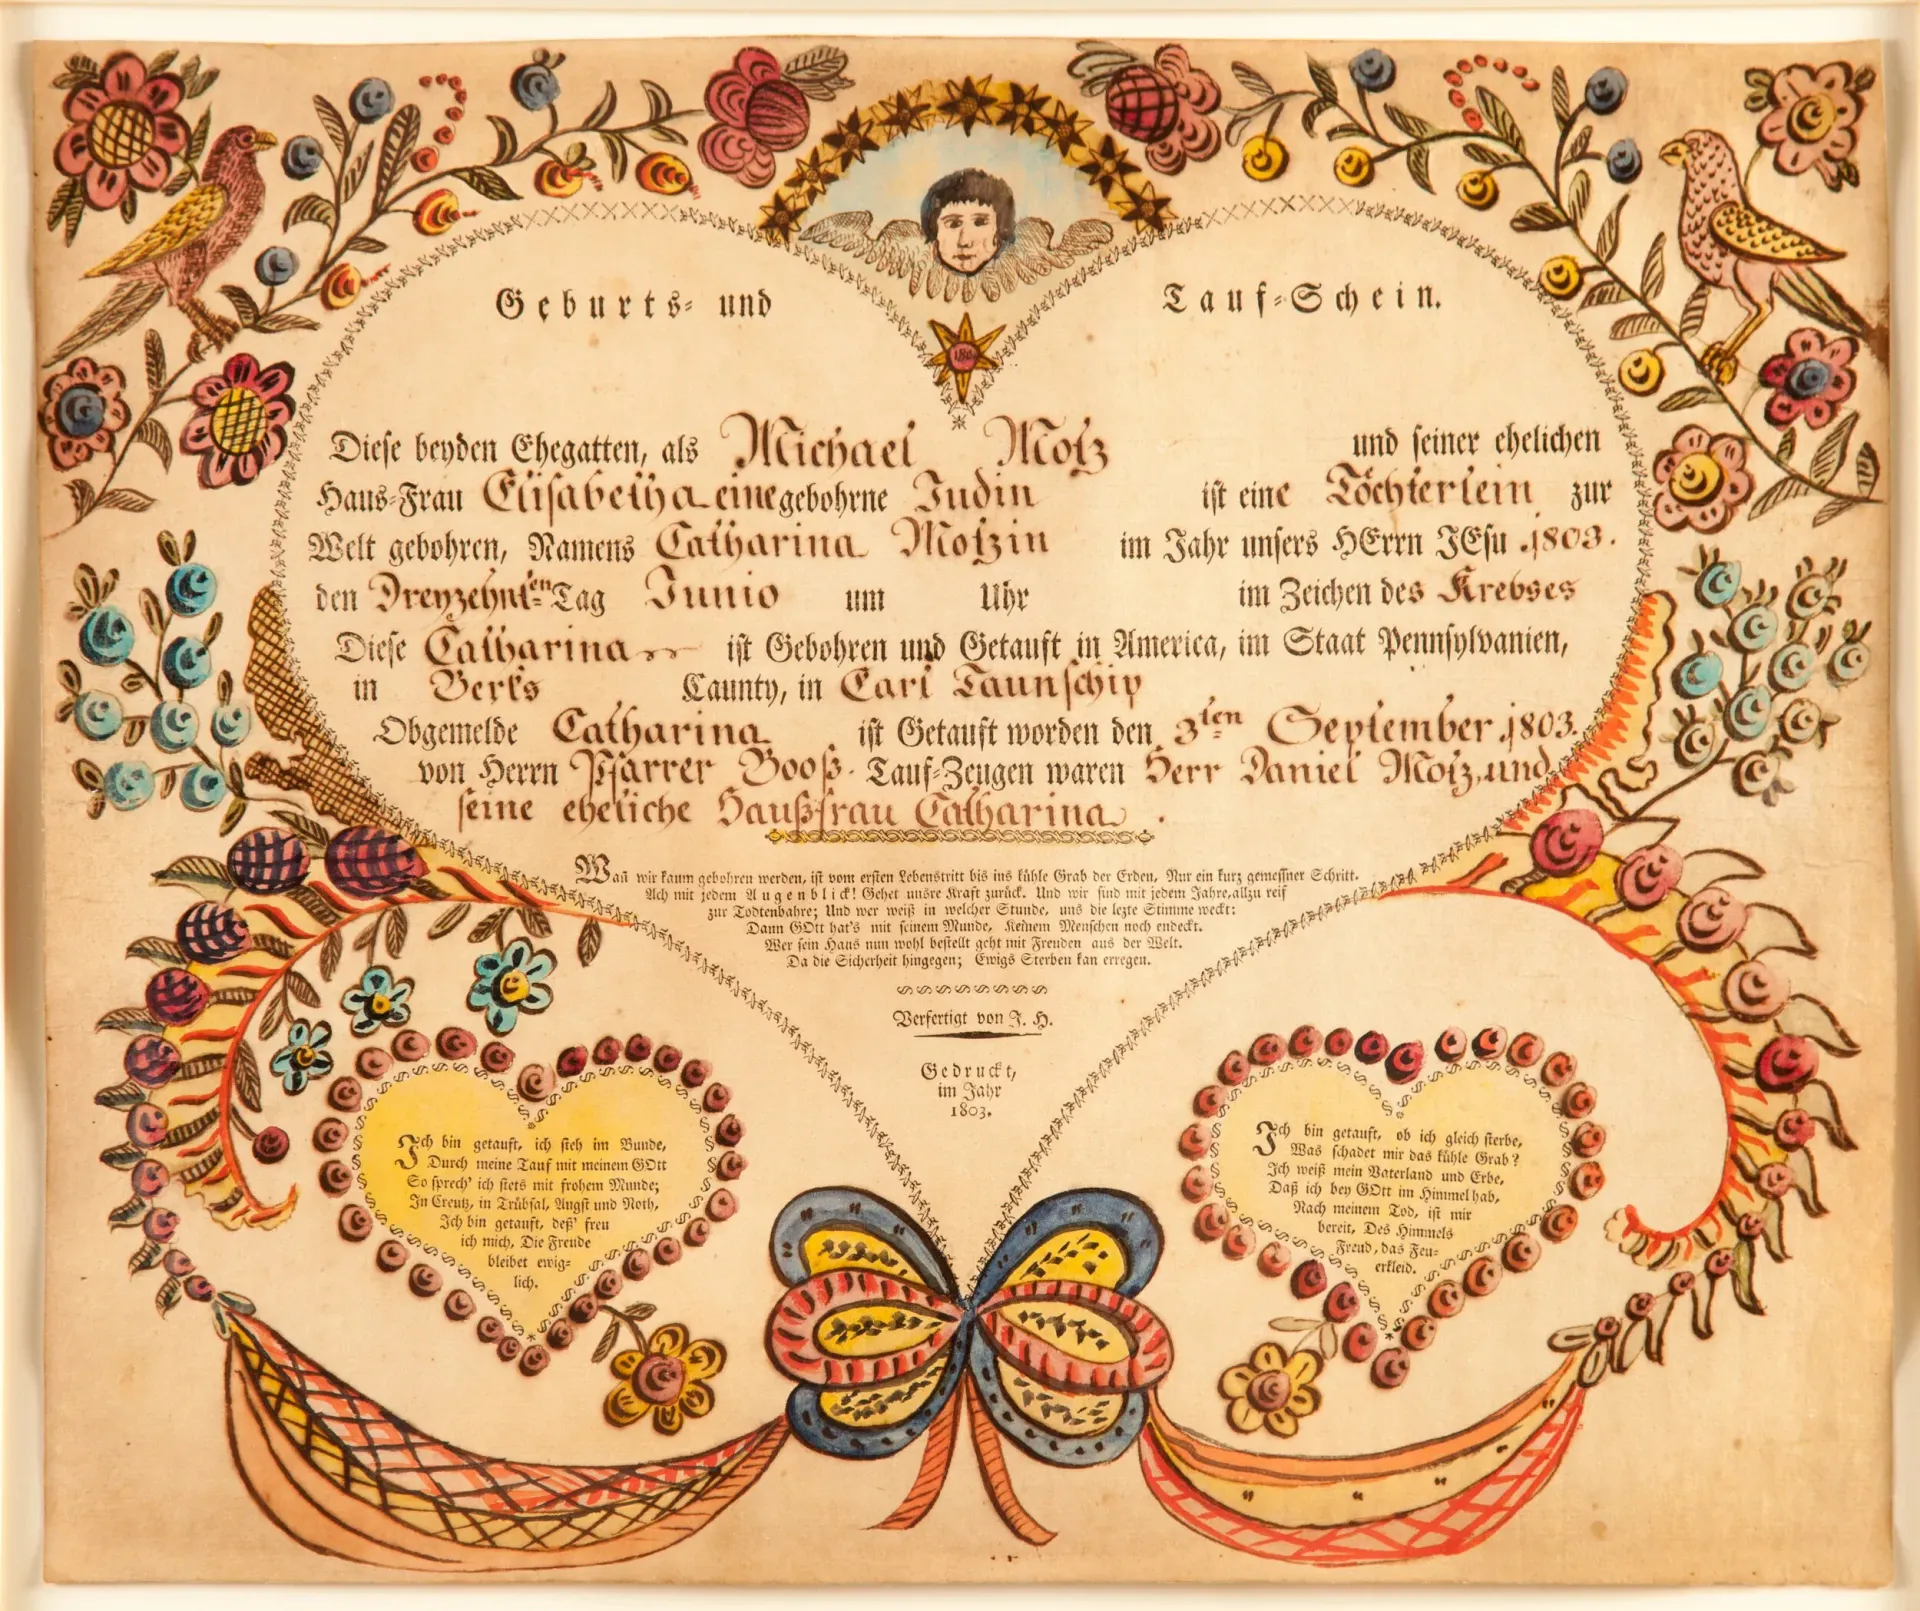 Geburts- und Tauf-Schein.
180
Diese beyden Ehegatten, als Michael Motz und seiner ehelichen
Haus-Frau Elisabetha eine gebohrne Judin ist eine Töchterlein zur
Welt gebohren, Namens Catharina Motzin im Jahr unsers HErrn JEsu 1803.
den Dreyzehnten Tag Junio um Uhr im Zeichen des Krebses
Diese Catharina ist Gebohren und Getauft in America, im Staat Pennsylvanien,
in Berks Caunty, in Earl Taunschip
Obgemelde Catharina ist Getauft worden den 3ten September 1803.
von Herrn Pfarrer Booß. Tauf-Zeugen waren Herr Daniel Motz, und
seine eheliche Haußfrau Catharina.
Wañ wir kaum gebohren werden, ist vom ersten Lebenstritt bis ins kühle Grab der Erden, Nur ein kurz gemessner Schritt.
Ach mit jedem Augenblick! Gehet unsre Kraft zurück. Und wir sind mit jedem Jahre, allzu reif
zur Todtenbahre; Und wer weiß in welcher Stunde, uns die lezte Stimme weckt:
Dann GOtt hat's mit seinem Munde, Keinem Menschen noch endeckt.
Wer sein Haus nun wohl bestellt geht mit Freuden aus der Welt.
Da die Sicherheit hingegen; Ewigs Sterben kan erregen.
Verfertigt von J. H.
Gedruckt,
im Jahr
1803.
Ich bin getauft, ich steh im Bunde,
Durch meine Tauf mit meinem GOtt
So sprech' ich stets mit frohem Munde;
In Creutz, in Trübsal, Angst und Noth,
Ich bin getauft, deß' freu
ich mich, Die Freude
bleibet ewig-
lich.
Ich bin getauft, ob ich gleich sterbe,
Was schadet mir das kühle Grab?
Ich weiß mein Vaterland und Erbe,
Daß ich bey GOtt im Himmel hab,
Nach meinem Tod, ist mir
bereit, Des Himmels
Freud, das Feu-
erkleid.